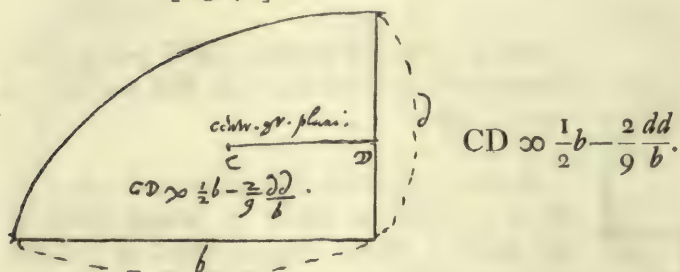 centr. gr. plani.
C D
CD ∞ ½b − 2/9 ∂∂/b .
∂
b
CD ∞ ½b − 2/9 dd/b.